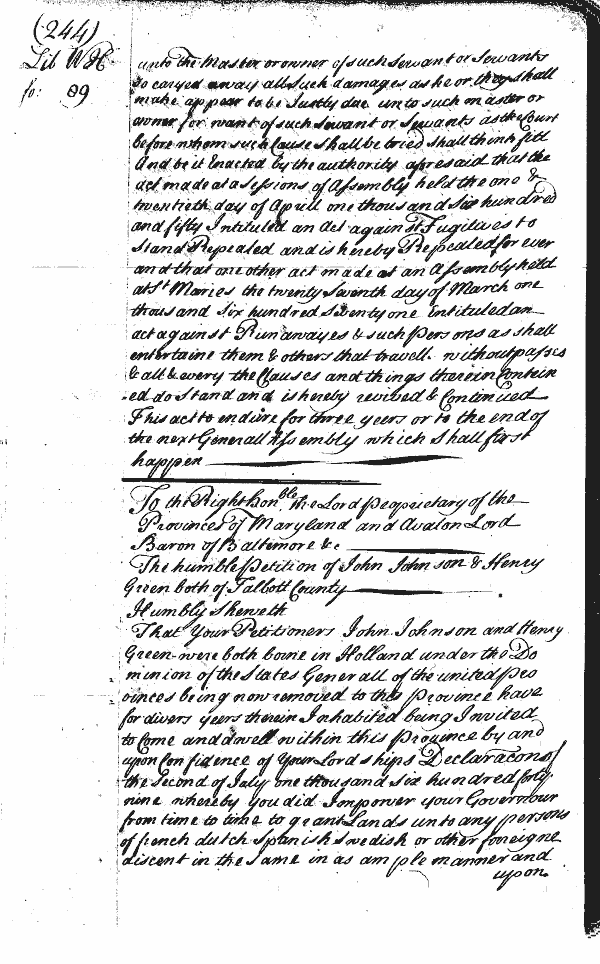 (244)
Lib WH
fo: 89
unto the Master or owner of such Servant or Servants
so caryed away all such damages as he or they shall
make appear to be Justly due unto such master or
owner for want of such Servant or Servants as the Court
before whom such Cause shall be tried shall think fitt
And be it Enacted by the authority aforesaid that the
act made at a Sessions of Assembly held the one &
twentieth day of Aprill one thousand Six hundred
and fifty Intituled an Act against Fugitives to
Stand Repealed and is hereby Repealed for ever
and that one other act made at an Assembly held
at St Maries the twenty Seventh day of March one
thousand Six hundred Seventy one Entituled an
act against Runawayes & such Persons as shall
entertaine them & others that travell without passes
& all & every the Clauses and things therein Contein
ed do Stand and is hereby revived & Continued
This act to endure for three yeers or to the end of
the next Generall Assembly which shall first
happen
To the Right Honble the Lord Proprietary of the
Provinces of Maryland and Avalon Lord
Baron of Baltimore &c
The humble Petition of John Johnson & Henry
Green both of Talbott County
Humbly Sheweth
That Your Petitioners John Johnson and Henry
Green were both borne in Holland under the Do
minion of the States Generall of the united Pro
vinces being now removed to this Province have
for divers yeers therein Inhabited being Invited
to Come and dwell within this Province by and
upon Confidence of Your Lordships Declaracon of
the Second of July one thousand Six hundred forty
nine whereby you did Impower your Governour
from time to time to grant Lands unto any persons
of french dutch Spanish Swedish or other foreigne
discent in the Same in as ample manner and
upon